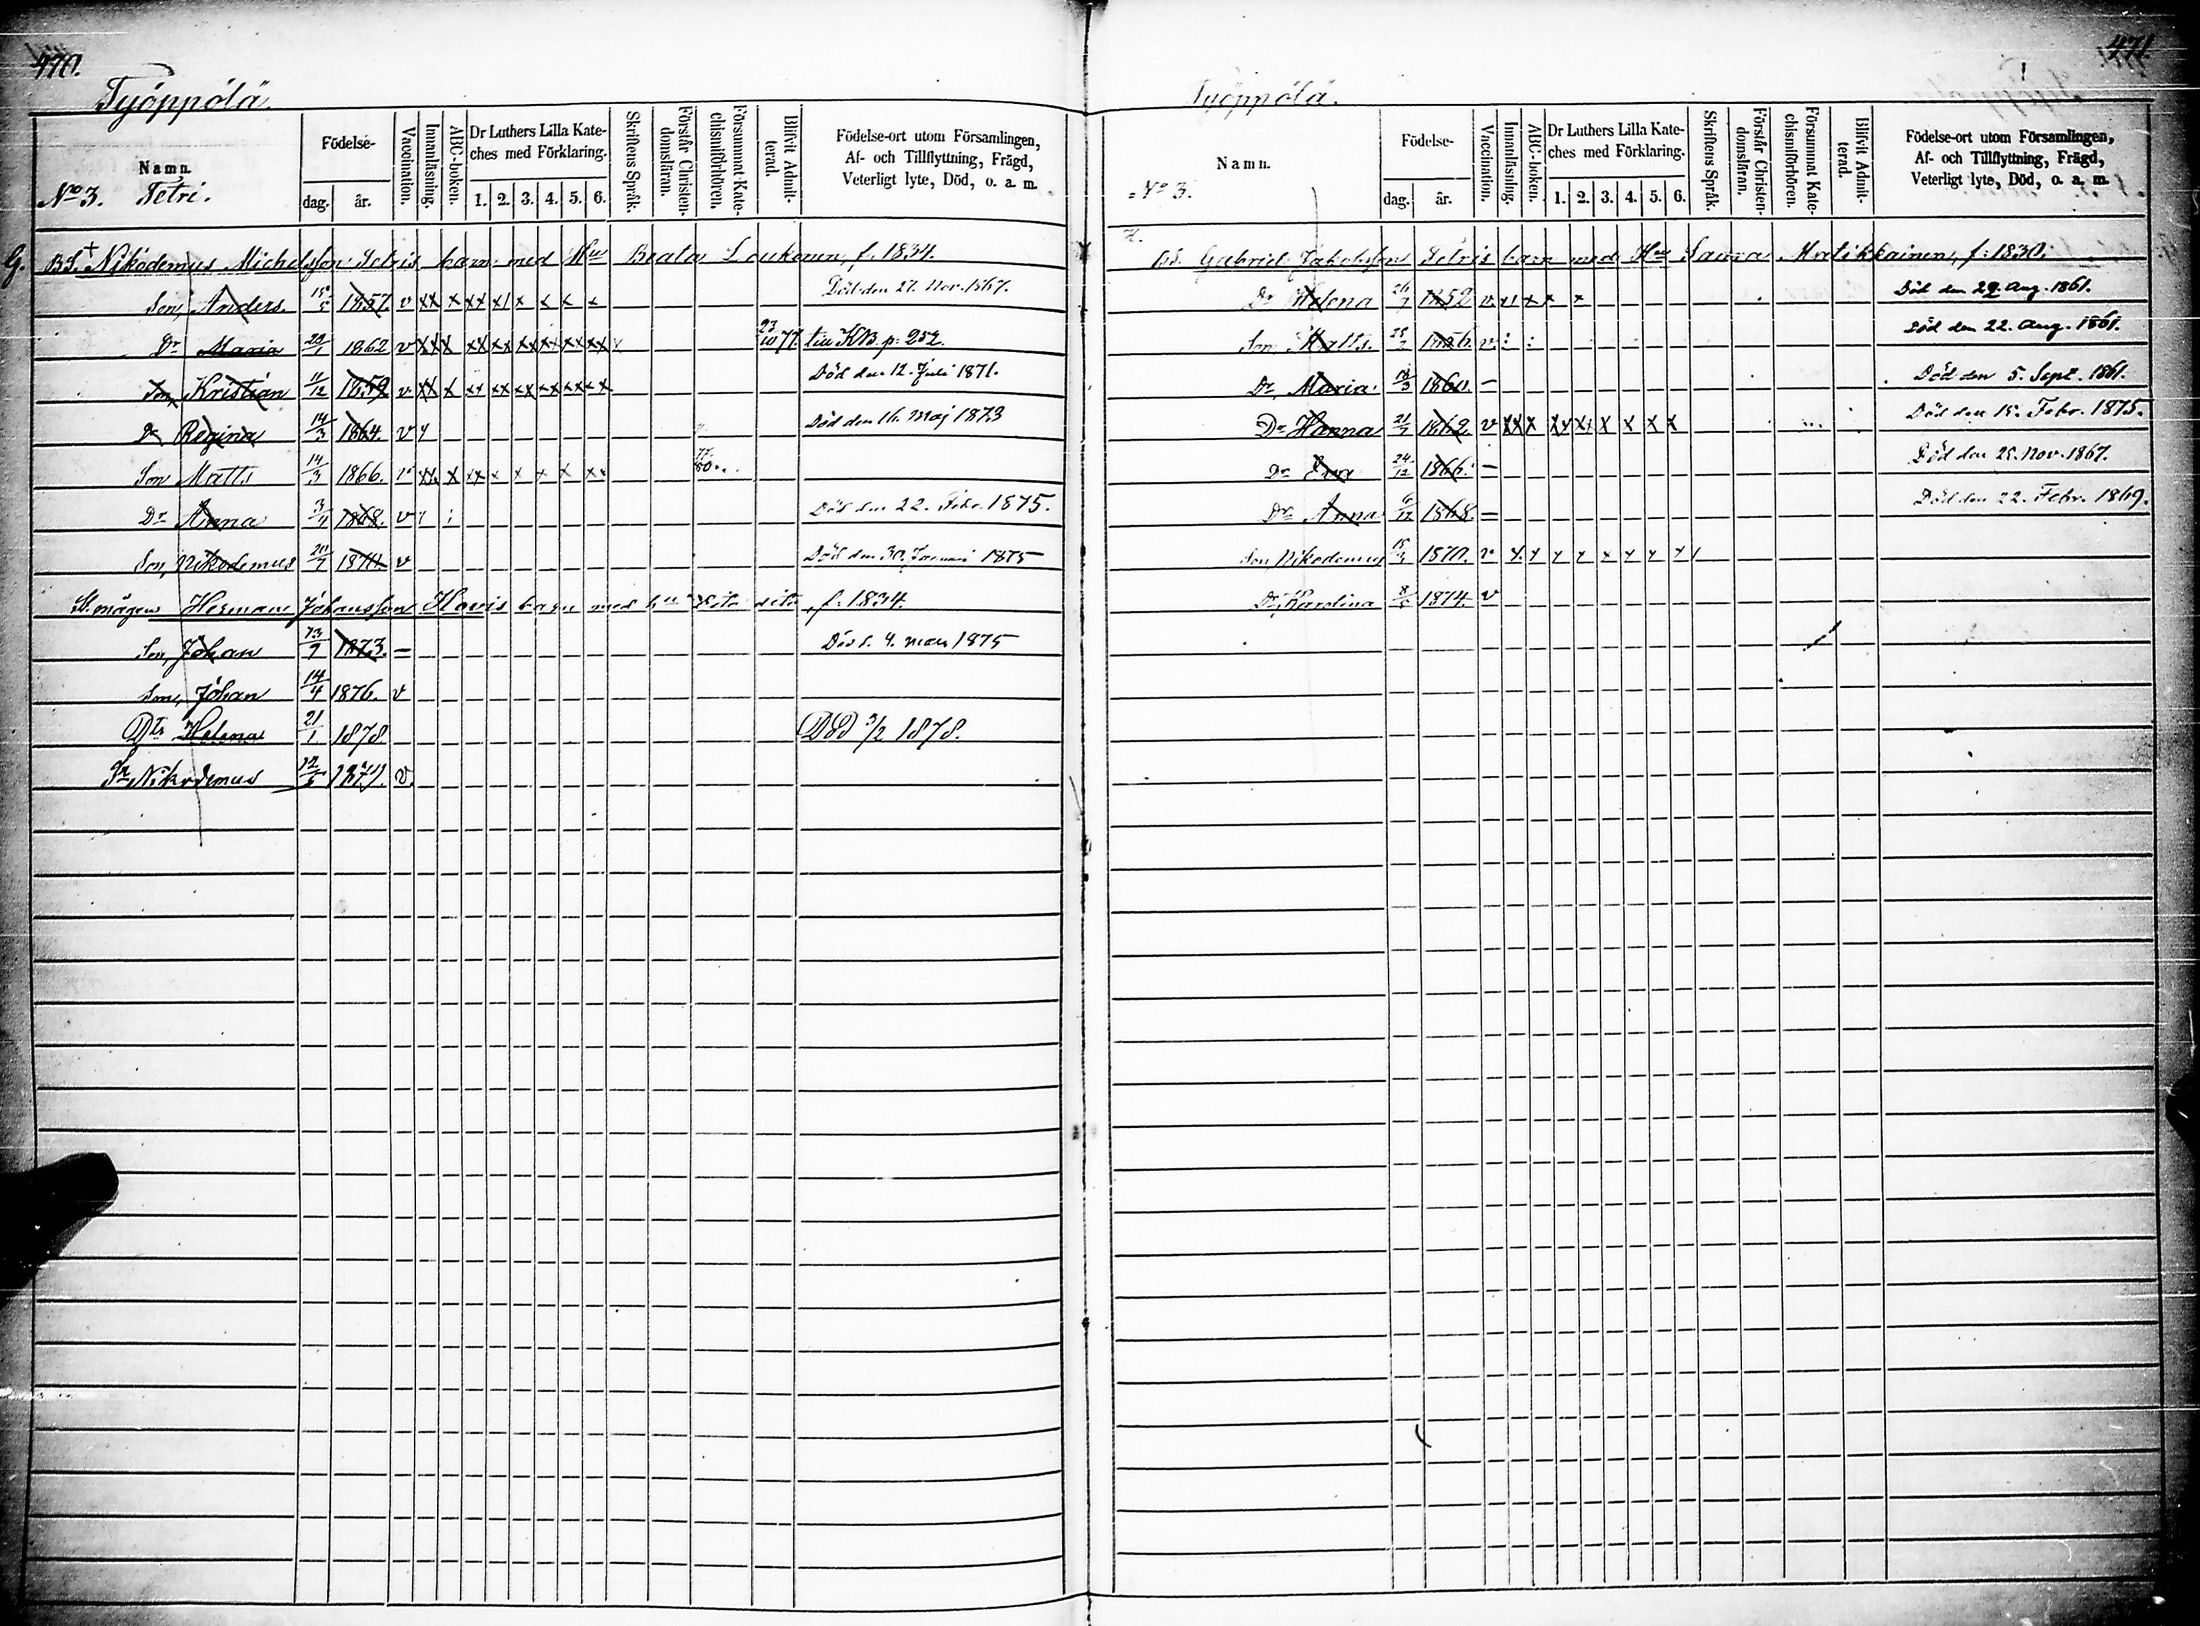 470.
Työppölä.
Namn.
Födelse-
dag.
år.
Vaccination.
Innanläsning.
ABC-boken.
Dr Luthers Lilla Kate-
ches med Förklaring.
1. 2. 3. 4. 5. 6.
Skriftens Språk.
Förstår Christen-
domsläran.
Försummat Kate-
chismiförhören.
Blifvit Admit-
terad.
Födelse-ort utom Församlingen,
Af- och Tillflyttning, Frägd,
Veterligt lyte, Död, o. a. m.
No 3. Tetri.
G. BS. + Nikodemus Michelsson Tetris barn med Hu Beata Loukonen, f. 1834.
Son, Anders. 1857. v xx x xx x1 x x x x Död den 27. Nov. 1867.
Dr Maria 20/1 1862 v xxx xx xx xx xx xx xx 23/10 77 till KB. p. 252.
Son, Kristian 11/12 1859 v xx x xx xx xx xx xx xx Död den 12. Juli 1871.
Dr Regina 14/3 1864. v Död den 16. Maj 1873
Son Matts 14/3 1866. v xx x xx x x x x xx
Dr Anna 3/4 1868. v Död den 22. Febr. 1875.
Son, Nikodemus 1870. v Död den 30. Januari 1875
St. mågen Herman Johansson Hovis barn med f. 1834.
Son, Johan 13/7 1873. – Död d. 4. mars 1875
Son, Johan 14/4 1876. v
Dtr Helena 21/1 1878. Död 3/2 1878.
Sn Nikodemus 12/5 v.
471.
Työppölä.
Namn.
Födelse-
dag.
år.
Vaccination.
Innanläsning.
ABC-boken.
Dr Luthers Lilla Kate-
ches med Förklaring.
1. 2. 3. 4. 5. 6.
Skriftens Språk.
Förstår Christen-
domsläran.
Försummat Kate-
chismiförhören.
Blifvit Admit-
terad.
Födelse-ort utom Församlingen,
Af- och Tillflyttning, Frägd,
Veterligt lyte, Död, o. a. m.
No 3.
H. BS. Gabriel Jakobsson Tetris barn med Hu Saura Matikkainen, f. 1830.
Dr Helena 26/7 1852 v. Död den 22 Aug. 1861.
Son Matts. 1856. v. Död den 22. Aug. 1861.
Dr Maria 1860. – Död den 5. Sept. 1861.
Dr Hanna 21/7 1862 v xx x xx x1 x x x x Död den 15. Febr. 1875.
Dr Eva 24/12 1866. – Död den 25. Nov. 1867.
Dr Anna 6/12 1868. – Död den 22. Febr. 1869.
Son, Nikodemus 1870. v
Dr, Karolina 1874. v